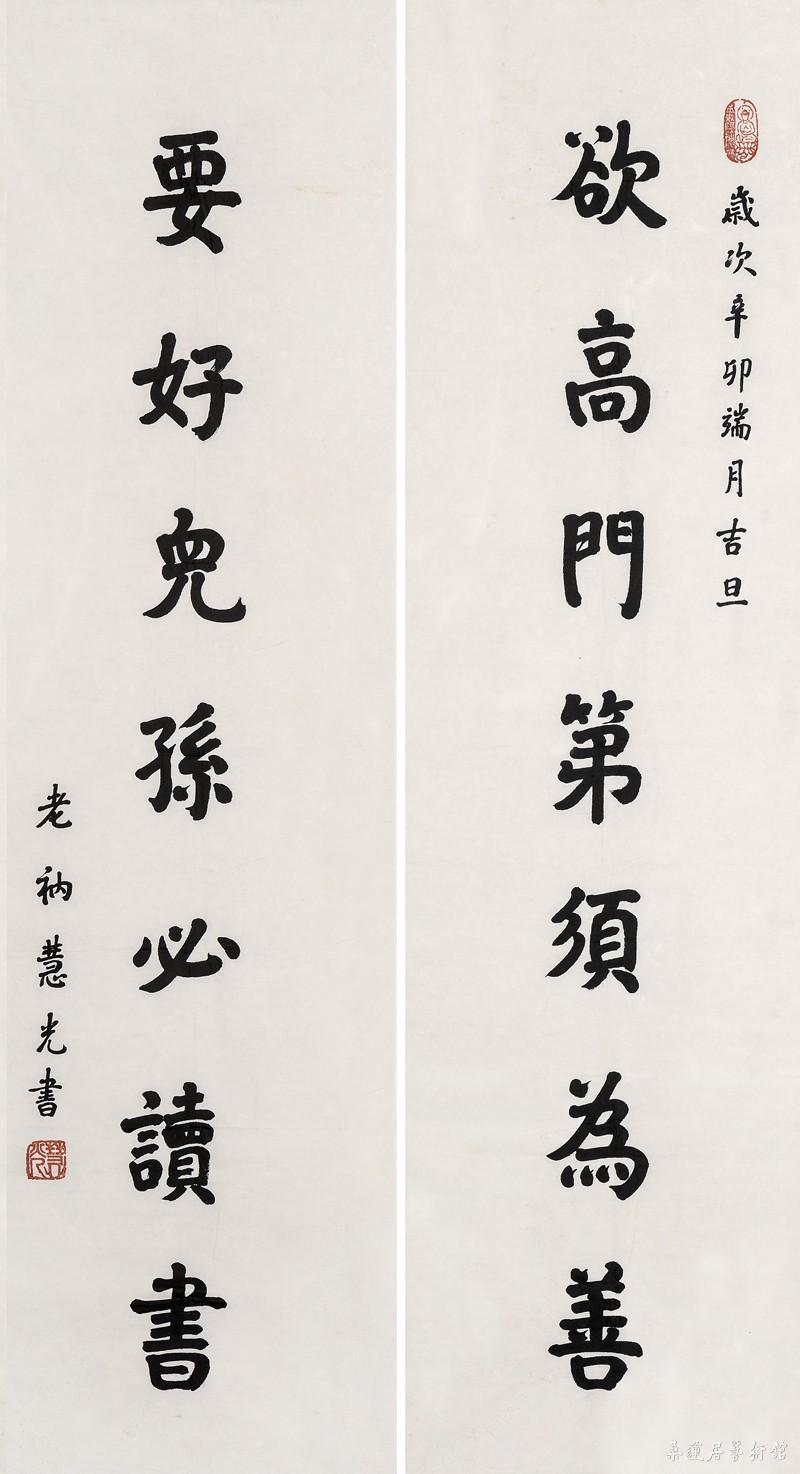 歲次辛卯端月吉旦
欲高門第須為善
要好兒孫必讀書
老衲慧光書
慧光
桑蓮居藝術館